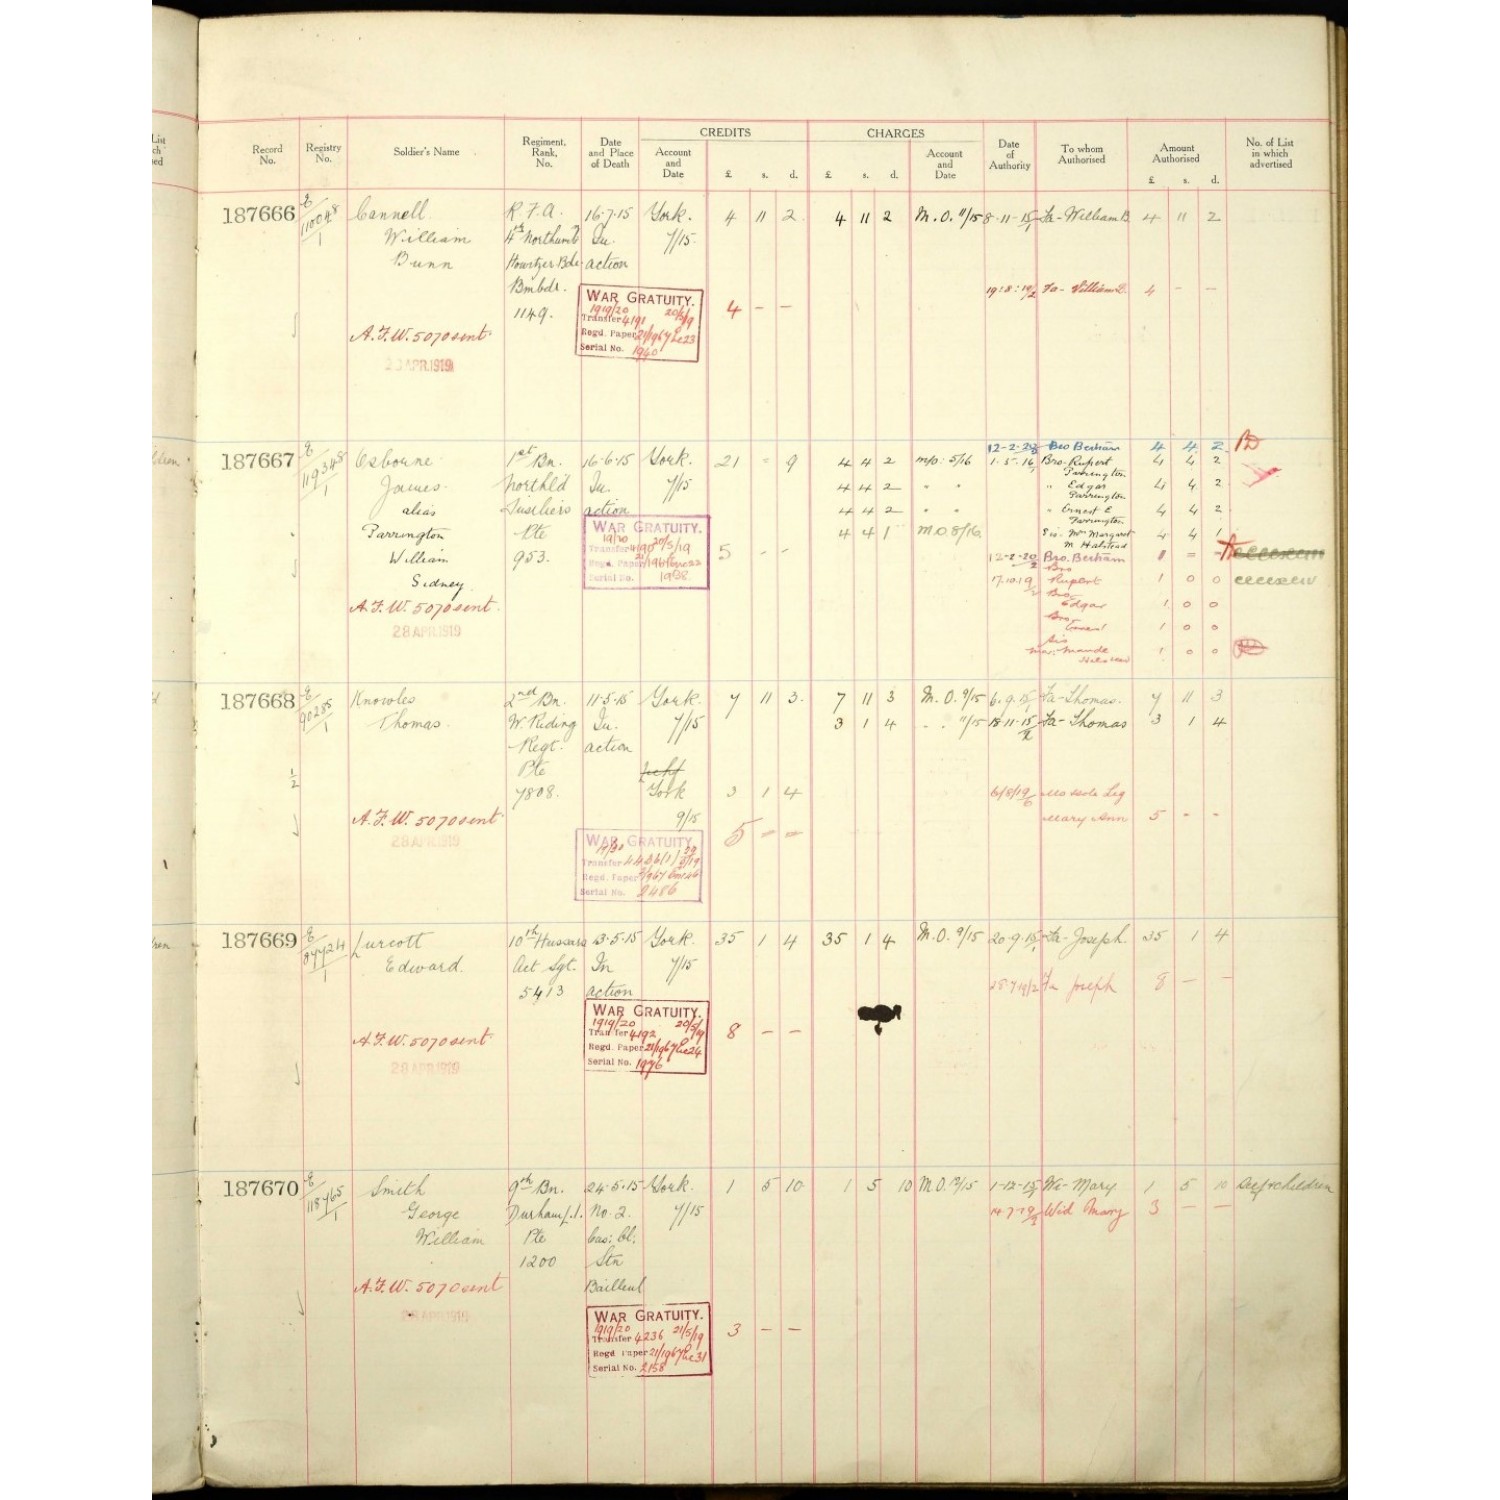 Record No.
Registry No.
Soldier's Name
Regiment, Rank, No.
Date and Place of Death
CREDITS
Account and Date
£ s. d.
CHARGES
£ s. d.
Account and Date
Date of Authority
To whom Authorised
Amount Authorised
£ s. d.
No. of List in which advertised
187666 E/110048/1 Cannell R.F.A. 16.7.15 York. 4 11 2 4 11 2 M.O. 11/15 8.11.15 Fa- William B 4 11 2
William 4th Northumb In 7/15
Bunn Howitzer Bde action
Bmbdr. 19:8:19 Fa- William B. 4 - -
1149.
WAR GRATUITY. 4 - -
1919/20
Transfer 4191 20/5/19
Regd. Paper 21/1967
Serial No. 1940
A.F.W. 5070 sent
23 APR 1919
187667 E/119348/1 Osbourne 1st Bn. 16.6.15 York. 21 - 9 4 4 2 M.O. 5/16
James Northld In 7/15 4 4 2 " "
alias Fusiliers action 4 4 2 " "
Parrington Pte 4 4 1 M.O. 8/16
William 953.
Sidney
12-2-20 Bro Bertram 4 4 2
1.5.16 Bro. Rupert Parrington 4 4 2
" Edgar Parrington 4 4 2
" Ernest E Parrington 4 4 2
Sis. Mrs Margaret M Halstead 4 4 1
12-2-20 Bro. Bertram
17.10.19 Bro Rupert 1 0 0
Bro Edgar 1 0 0
Bro Ernest 1 0 0
Sis Mrs. Maude Halstead 1 0 0
WAR GRATUITY. 5 - -
19/20
Transfer 4190 20/5/19
Regd. Paper
Serial No. 1938
A.F.W. 5070 sent
28 APR 1919
187668 E/90285/1 Knowles 2nd Bn. 11.5.15 York. 7 11 3. 7 11 3 M.O. 9/15 6.9.15 Fa- Thomas. 7 11 3
Thomas. W. Riding In 7/15 3 1 4 " 11/15 18.11.15 Fa- Thomas 3 1 4
Regt. action
Pte
½
7808. York 3 1 4 6/8/19 Mo sole Leg
9/15 Mary Ann 5 - -
A.F.W. 5070 sent
28 APR 1919
WAR GRATUITY 5 - -
19/20
Transfer
Regd. Paper
Serial No. 2486
187669 E/87724/1 Lurcott 10th Hussars 13.5.15 York. 35 1 4 35 1 4 M.O. 9/15 20.9.15 Fa- Joseph. 35 1 4
Edward. Act Sgt. In 7/15
5413 action 28.7.19 Fa Joseph 8 - -
WAR GRATUITY. 8 - -
1919/20 20/5/19
Transfer 4192
Regd. Paper 21/1967
Serial No. 1976
A.F.W. 5070 sent
28 APR 1919
187670 E/118765/1 Smith 9th Bn. 24.5.15 York. 1 5 10 1 5 10 M.O. 12/15 1-12-15 Wi- Mary 1 5 10 Self & children
George Durham L.I. No. 2. 7/15 14.7.19 Wid Mary 3 - -
William Pte Cas: Cl:
1200 Stn
A.F.W. 5070 sent Bailleul
28 APR 1919
WAR GRATUITY. 3 - -
1919/20 21/5/19
Transfer 4236
Regd. Paper 21/1967
Serial No. 2158